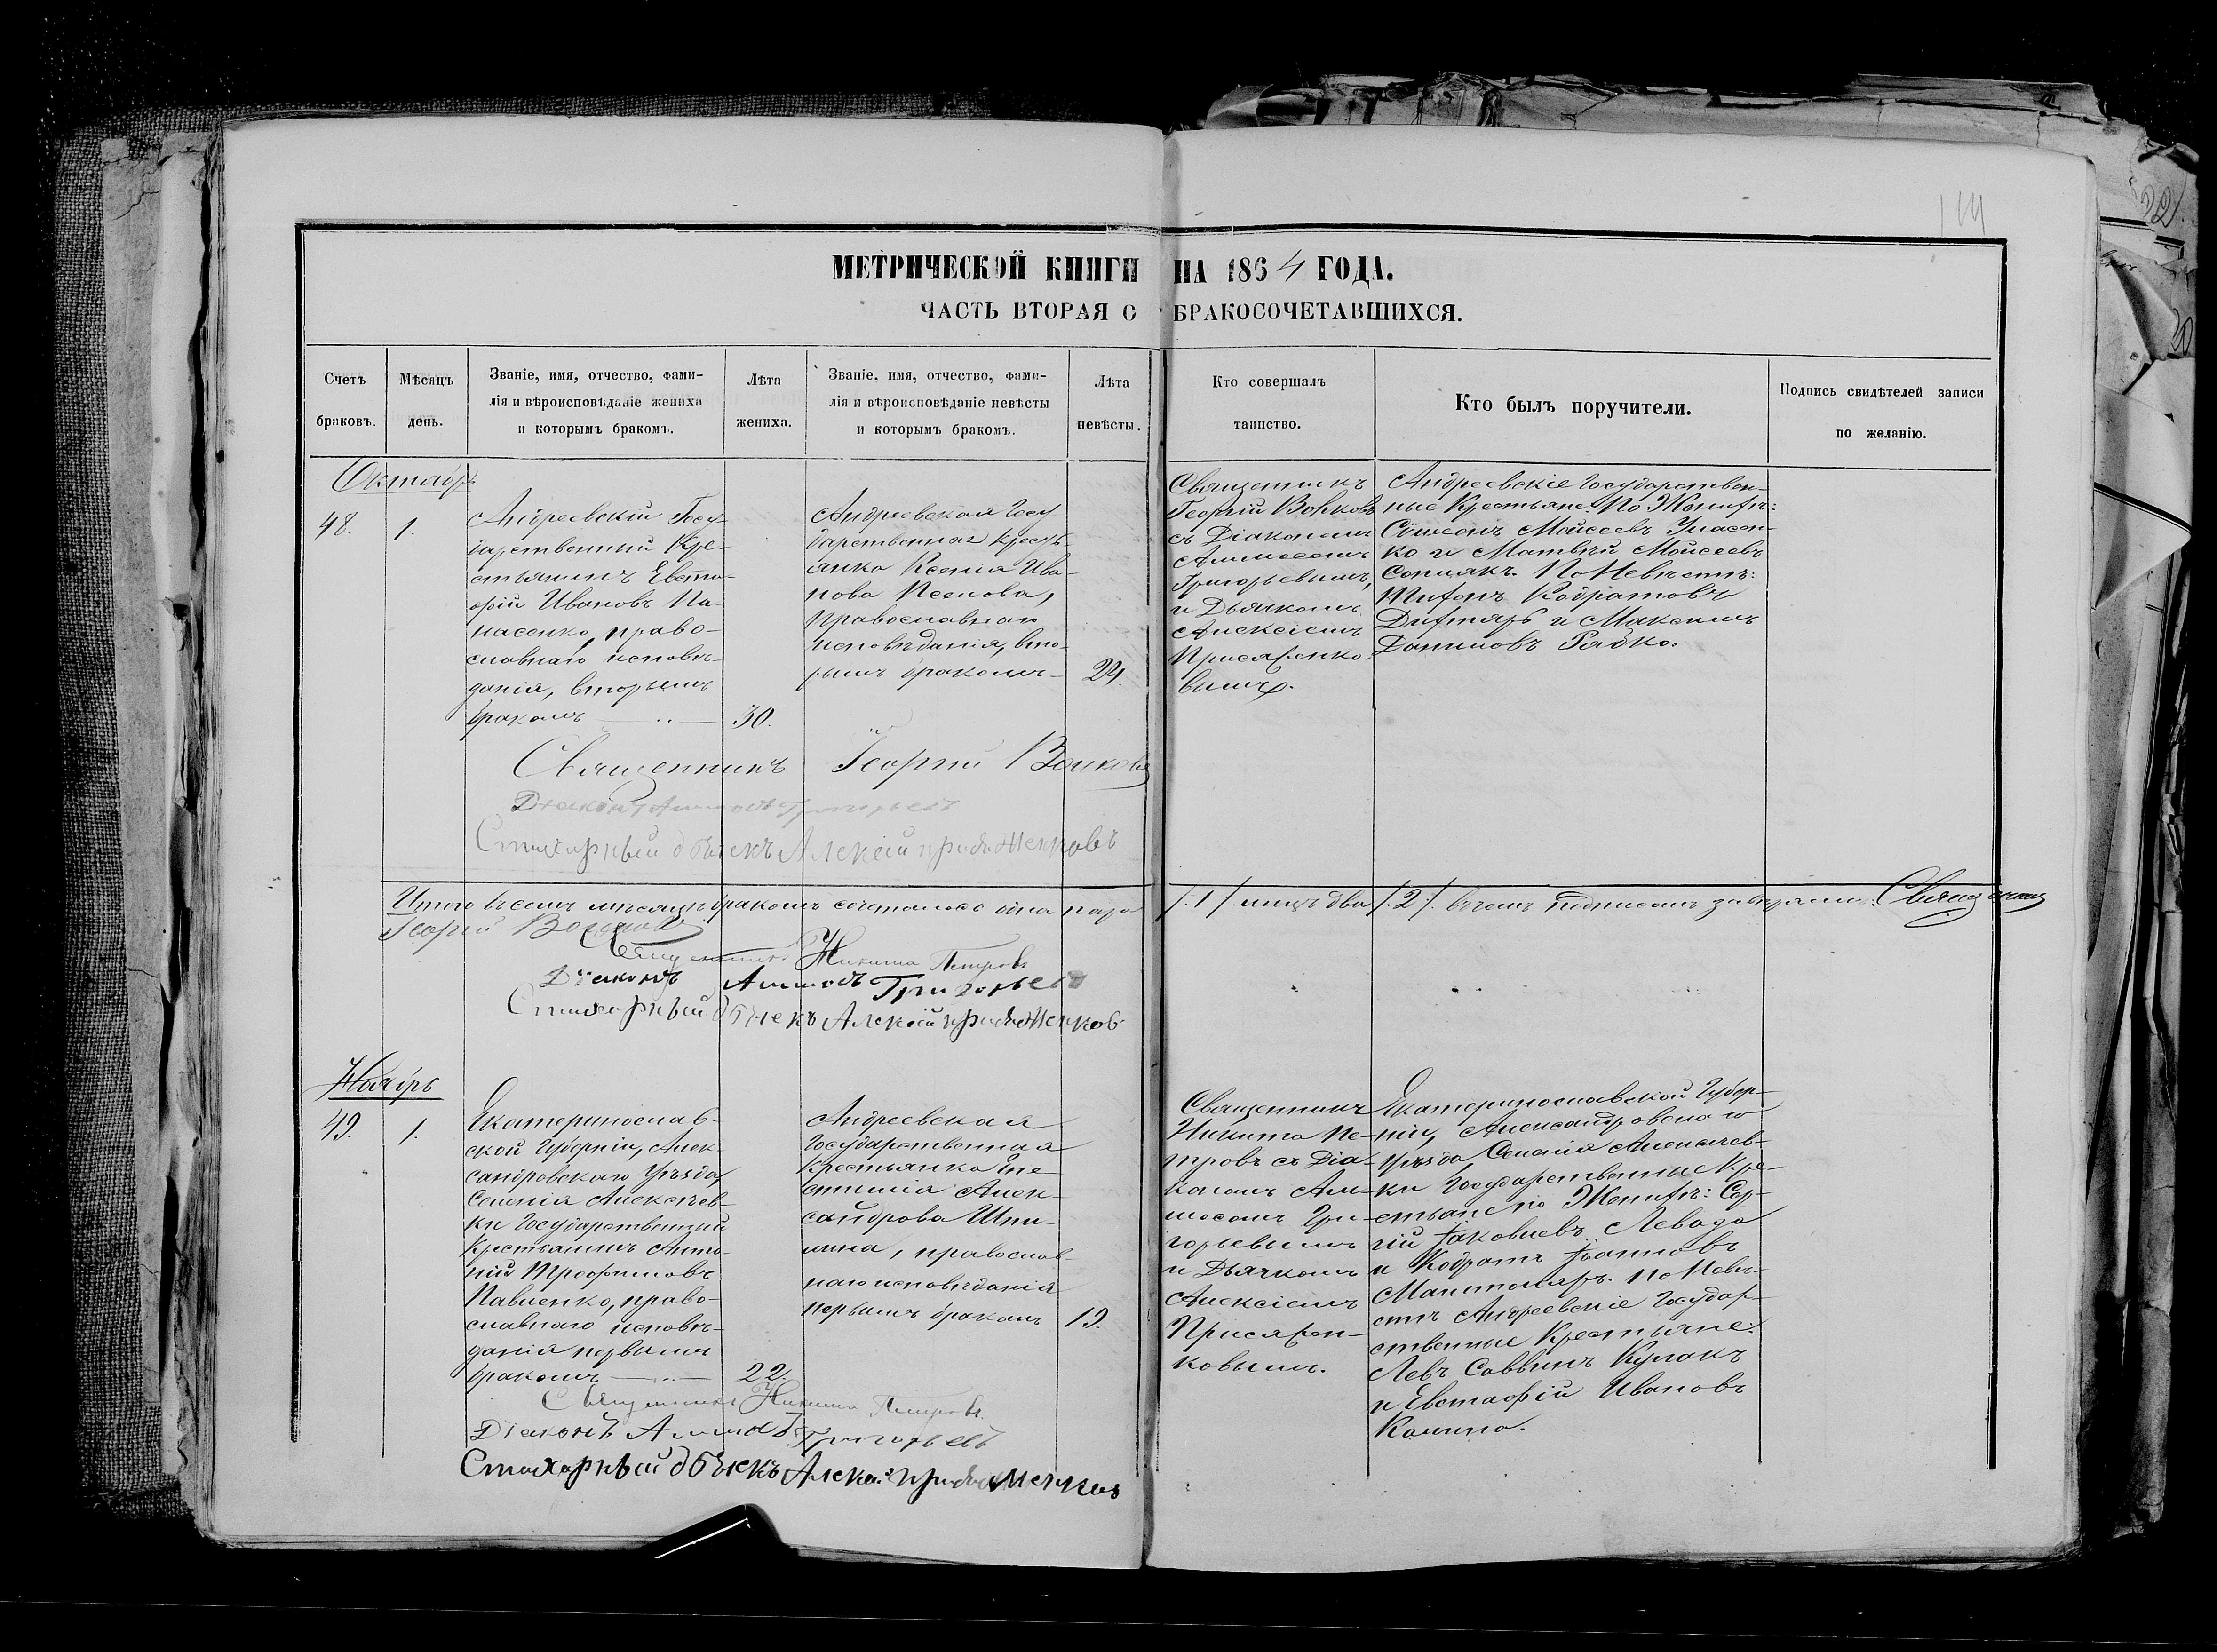 МЕТРИЧЕСКОЙ КНИГИ НА 1864 ГОДА.
ЧАСТЬ ВТОРАЯ О БРАКОСОЧЕТАВШИХСЯ.
Счетъ браковъ.
Мѣсяцъ день.
Званіе, имя, отчество, фами-
лія и вѣроисповѣданіе жениха
и которымъ бракомъ.
Лѣта жениха.
Званіе, имя, отчество, фами-
лія и вѣроисповѣданіе невѣсты
и которымъ бракомъ.
Лѣта невѣсты.
Кто совершалъ
таинство.
Кто былъ поручители.
Подпись свидѣтелей записи
по желанію.
Октябрь
48.
1.
Андреевскій Госу-
дарственный Кре-
стьянинъ Евста-
фій Ивановъ Па-
насенко, право-
славнаго исповѣ-
данія, вторымъ
бракомъ
30.
Андреевская Госу
дарственная кресть-
янка Ксенія Ива-
нова
православнаго
исповѣданія, вто-
рымъ бракомъ
24.
Священникъ
Георгій Волковъ
съ Діакономъ
Аммосомъ
Григорьевымъ,
и Дьячкомъ
Алексіемъ
Присяженко-
вымъ.
Андреевскіе Государствен-
ные Крестьяне. По Женихѣ:
Сѵмеонъ Мойсеевъ
ко и Матвѣй Мойсеевъ
По Невѣстѣ:
Тихонъ Кодратовъ
Дихтярь и Максимъ
Даниловъ Рябко.
Священникъ Георгій Волковъ
Діаконъ Аммосъ Григорьевъ
Стихарный дьячекъ Алексій Присяженковъ
Итого въ семъ мѣсяцѣ бракомъ сочеталось одна пара /.1/. лицъ два /.2/. въ чемъ подписомъ завѣряемъ: Священникъ
Георгій Волковъ
Священникъ Никита Петровъ
Діаконъ Аммосъ Григорьевъ
Стихарный дьячекъ Алексій Присяженков
Ноябрь
49.
1.
Екатеринослав-
ской Губерніи, Алек-
сандровскаго Уѣзда,
Селенія Алексѣев-
ки Государственный
Крестьянинъ Анто-
ній Трофимовъ
Павленко, право-
славнаго исповѣ-
данія первымъ
бракомъ
22.
Андреевская
Государственная
Крестьянка
Алек-
сандрова
православ-
наго исповѣданія
первымъ бракомъ
19.
Священникъ
Никита Пе-
тровъ съ Діа-
кономъ Ам-
мосомъ Гри-
горьевымъ
и Дьячкомъ
Алексіемъ
Присяжен-
ковымъ.
Екатеринославской Губер-
ніи, Александровскаго
Уѣзда Селенія Алексѣев-
ки Государственные Кре-
стьяне по Женихѣ: Сер-
гій Іаковлевъ Левада
и Кодратъ Іоанновъ
По Невѣ-
стѣ Андреевскіе Государ-
ственные Крестьяне:
Левъ Саввинъ Кулакъ
и Евстафій Ивановъ
Калина.
Священникъ Никита Петровъ.
Діаконъ Аммосъ Григорьевъ
Стихарный дьячекъ Алексій Присяженков